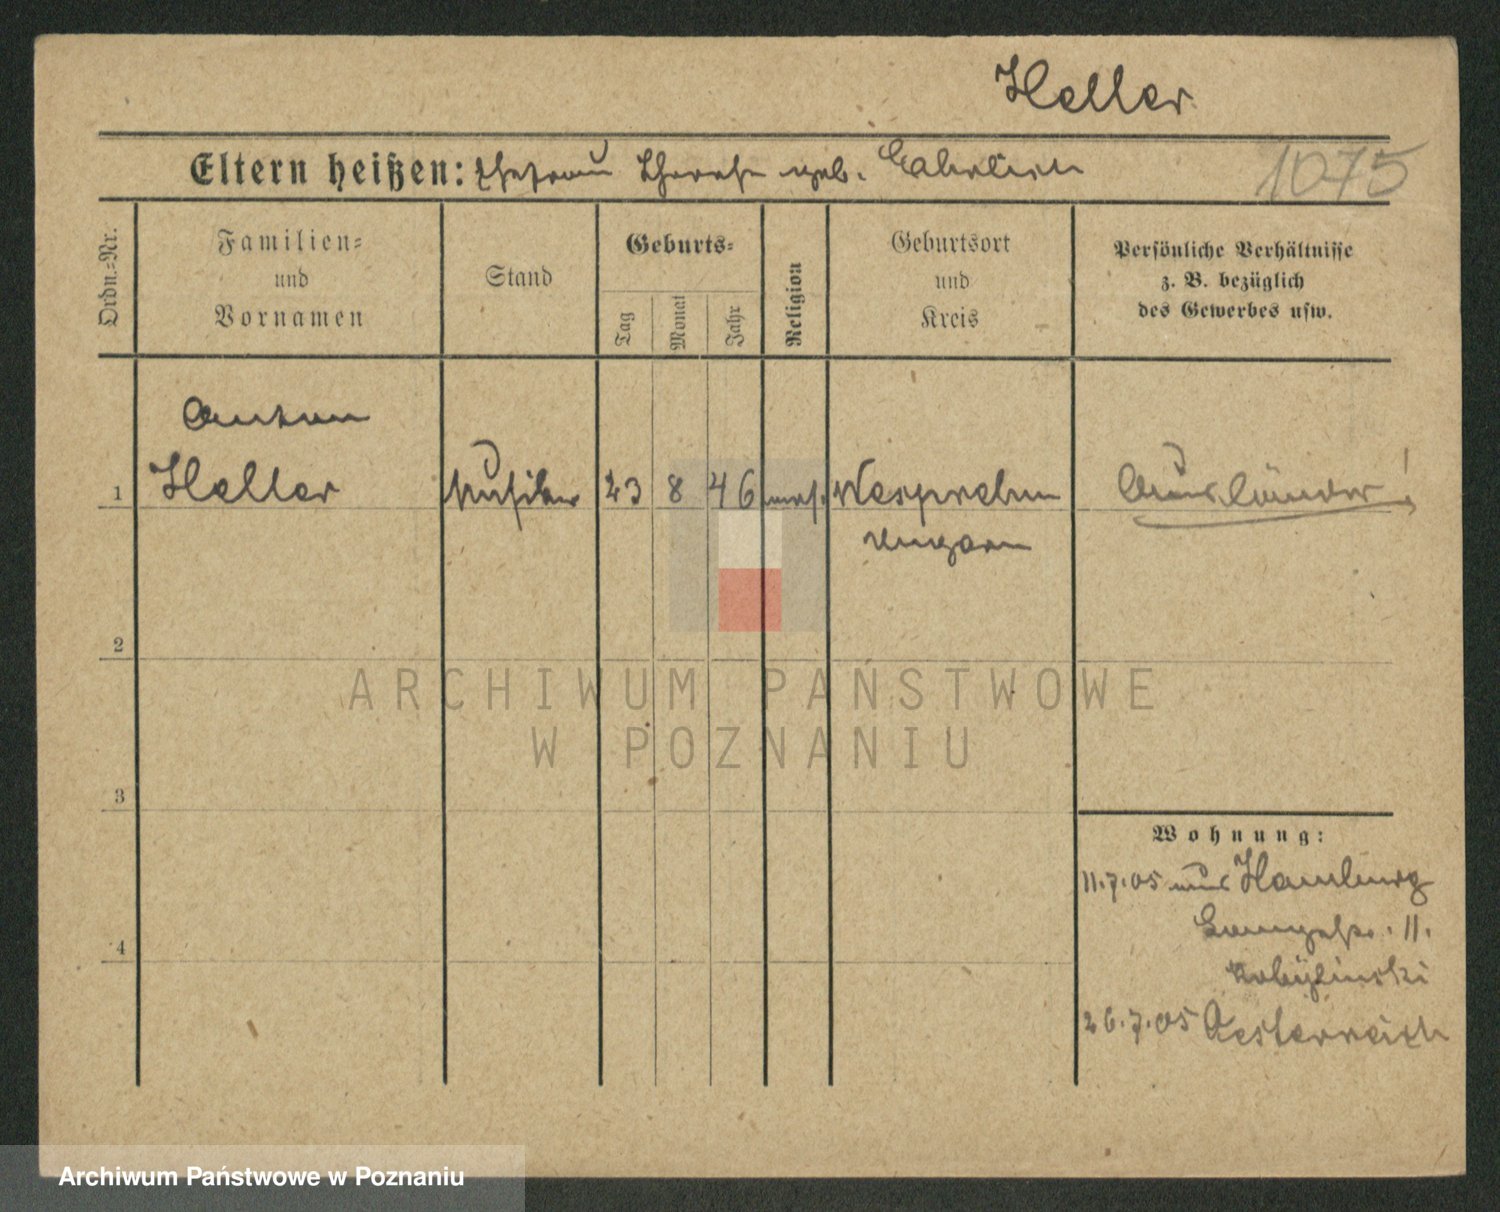 Heller
Eltern heißen: Ehefrau Therese geb. Ehrlich
1075
Ordn.-Nr.
Familien-
und
Vornamen
Stand
Geburts-
Tag
Monat
Jahr
Religion
Geburtsort
und
Kreis
Persönliche Verhältnisse
z. B. bezüglich
des Gewerbes usw.
Anton
1 Heller Musiker 23 8 46 mos. Wesprehm Ausländer!
Ungarn
2
3
4
Wohnung:
11.7.05 aus Hamburg
11.
Kobylinski
26.7.05 Oesterreich
ARCHIWUM PAŃSTWOWE
W POZNANIU
Archiwum Państwowe w Poznaniu